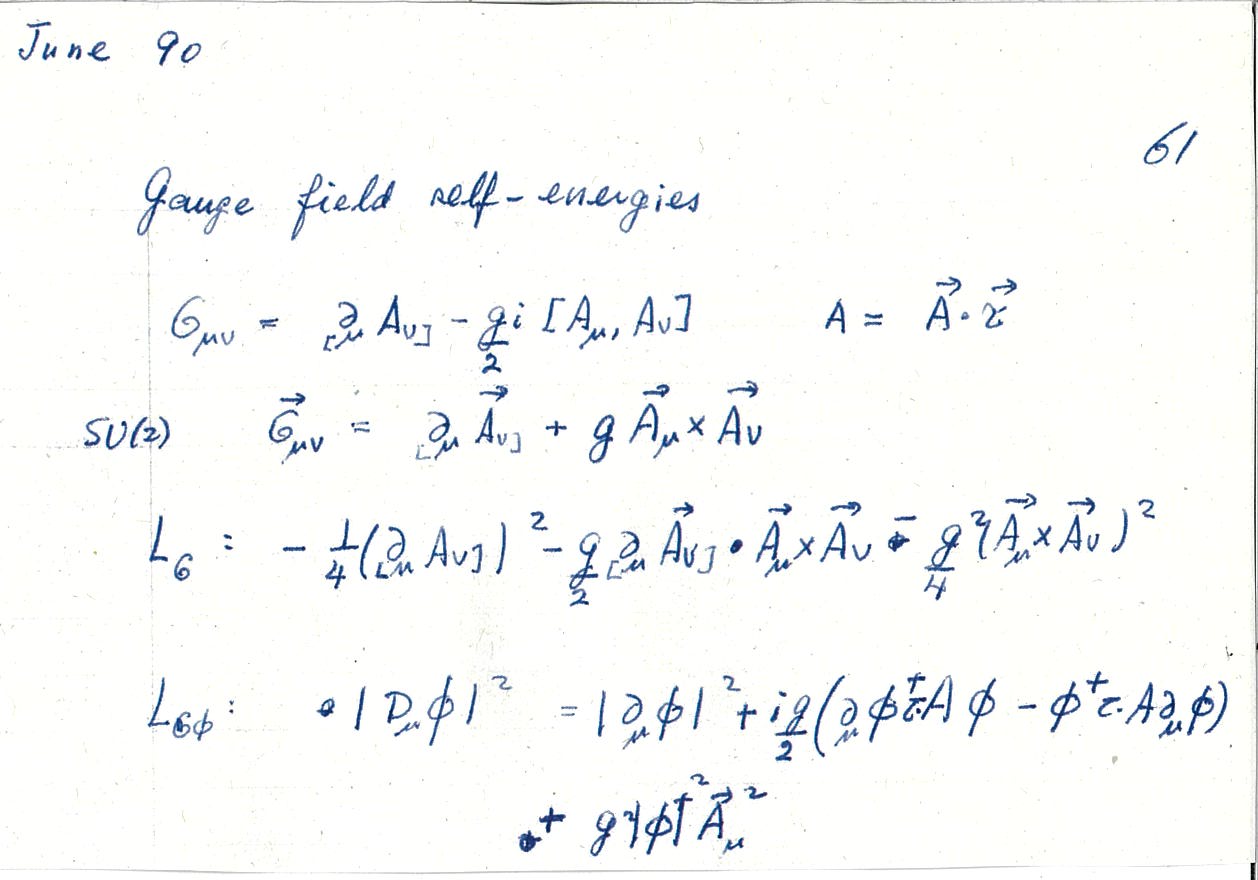 June 90
61
Gauge field self-energies
G_μν = ∂_[μ A_ν] - g/2 i [A_μ, A_ν]    A = A⃗·τ⃗
SU(2)    G⃗_μν = ∂_[μ A⃗_ν] + g A⃗_μ × A⃗_ν
L_G : - 1/4 (∂_[μ A_ν])² - g/2 ∂_[μ A⃗_ν] · A⃗_μ × A⃗_ν - g²/4 (A⃗_μ × A⃗_ν)²
L_Gφ : |D_μ φ|² = |∂_μ φ|² + ig/2 (∂_μ φ⁺ τ·A φ - φ⁺ τ·A ∂_μ φ)
+ g² |φ|² A⃗_μ²